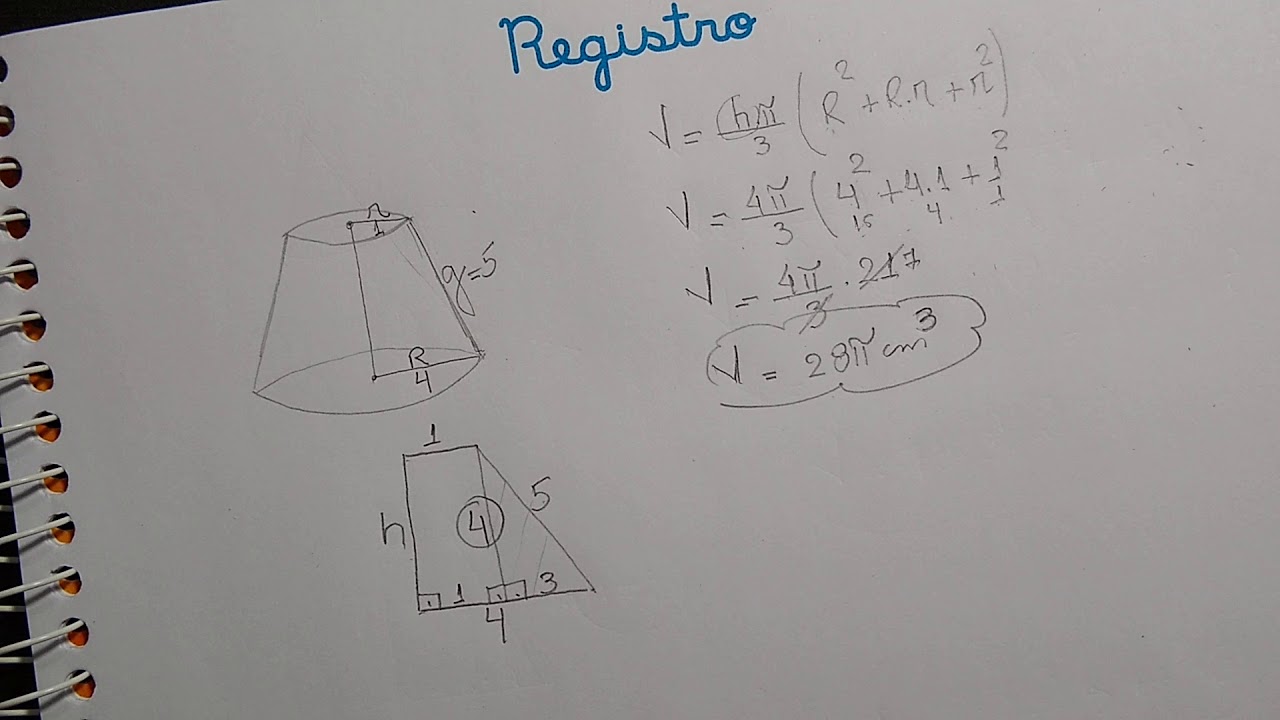 Registro
V = hπ/3 (R² + R.r + r²)
V = 4π/3 (4² + 4.1 + 1²
16 4 1
V = 4π/3 . 21 7
V = 28π cm³
r
1
g=5
R
4
1
h
4
5
1
3
4